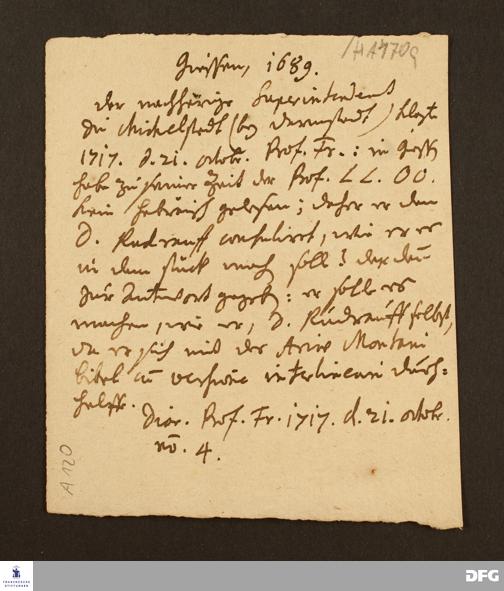 H A 170g
Giessen, 1689.
der nachherige Superintendent
zu Michelstadt (bey Darmstadt) klagte
1717. d. 21. octobr. Prof. Fr.: in Giessen
habe zu seiner Zeit der Prof. LL. OO.
kein hebräisch gelesen; daher er den
D. Rudrauff consulirt, wie er es
in dem stück machen soll? der dann
zur Antwort gegeben: er solle es
machen, wie er, D. Rudrauff selbst,
da er sich mit der Ariae Montani
bibel cum versione interlineari durch=
helffe.
Diar. Prof. Fr. 1717. d. 21. octobr.
no. 4.
A 120
FRANCKESCHE STIFTUNGEN
DFG